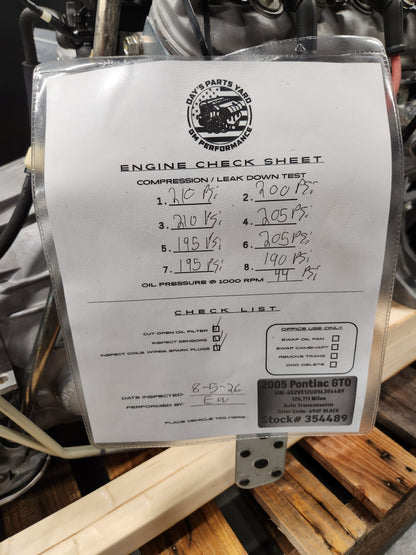 DAY'S PARTS YARD
GM PERFORMANCE
ENGINE CHECK SHEET
COMPRESSION / LEAK DOWN TEST
1. 210 PSi 2. 200 PSi
3. 210 PSi 4. 205 PSi
5. 195 PSi 6. 205 PSi
7. 195 PSi 8. 190 PSi
OIL PRESSURE @ 1000 RPM 44 PSi
CHECK LIST
CUT OPEN OIL FILTER
INSPECT SENSORS
INSPECT COILS, WIRES, SPARK PLUGS
OFFICE USE ONLY
SWAP OIL PAN
SWAP CAMSHAFT
REMOVE TRANS
DOD DELETE
DATE INSPECTED: 8-5-26
PERFORMED BY: EW
PLACE VEHICLE TAG HERE
2005 Pontiac GTO
VIN: 6G2VX12U05L354489
126,111 Miles
Auto Transmission
Color Code: 692F BLACK
Stock# 354489